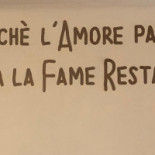 CHÈ L'AMORE PA
A LA FAME RESTA